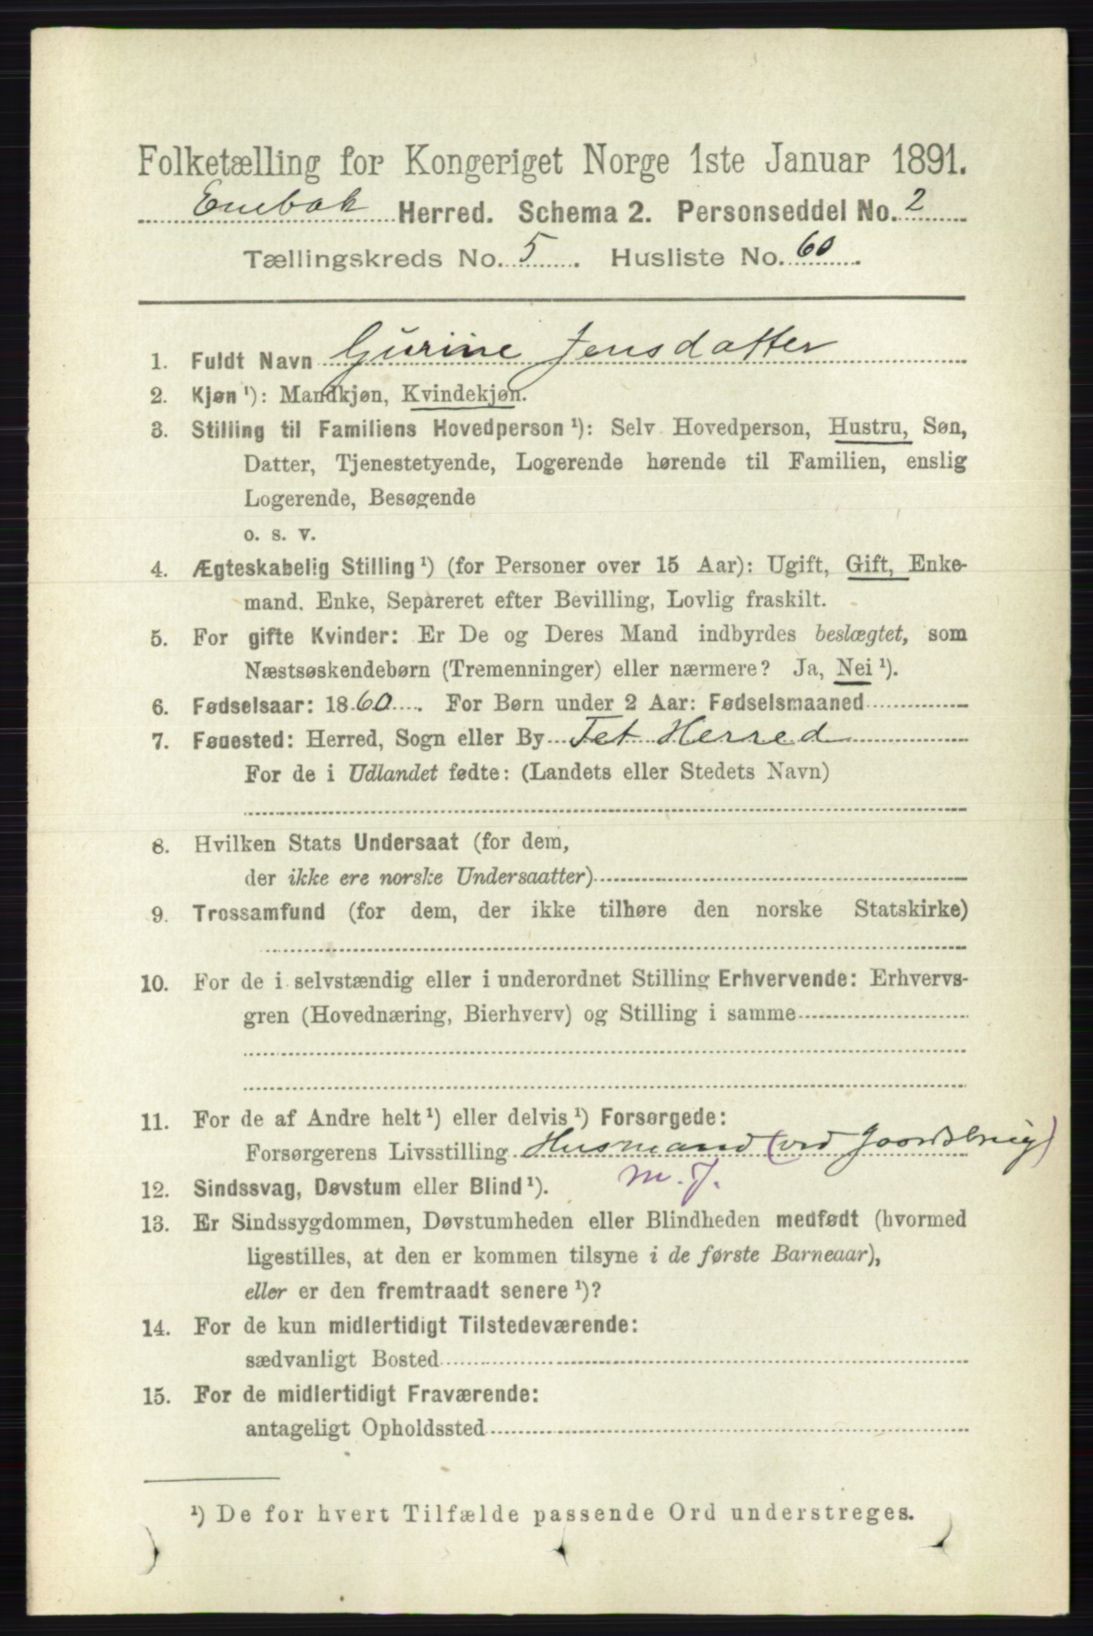 Folketælling for Kongeriget Norge 1ste Januar 1891.
Enebak Herred. Schema 2. Personseddel No. 2
Tællingskreds No. 5. Husliste No. 60.
1. Fuldt Navn Gurine Jensdatter
2. Kjøn¹): Mandkjøn, Kvindekjøn.
3. Stilling til Familiens Hovedperson¹): Selv Hovedperson, Hustru, Søn,
Datter, Tjenestetyende, Logerende hørende til Familien, enslig
Logerende, Besøgende
o. s. v.
4. Ægteskabelig Stilling¹) (for Personer over 15 Aar): Ugift, Gift, Enke-
mand, Enke, Separeret efter Bevilling, Lovlig fraskilt.
5. For gifte Kvinder: Er De og Deres Mand indbyrdes beslægtet, som
Næstsøskendebørn (Tremenninger) eller nærmere? Ja, Nei¹).
6. Fødselsaar: 1860. For Børn under 2 Aar: Fødselsmaaned
7. Fødested: Herred, Sogn eller By Fet Herred
For de i Udlandet fødte: (Landets eller Stedets Navn)
8. Hvilken Stats Undersaat (for dem,
der ikke ere norske Undersaatter)
9. Trossamfund (for dem, der ikke tilhøre den norske Statskirke)
10. For de i selvstændig eller i underordnet Stilling Erhvervende: Erhvervs-
gren (Hovednæring, Bierhverv) og Stilling i samme
11. For de af Andre helt¹) eller delvis¹) Forsørgede:
Forsørgerens Livsstilling Husmand (ved Joordbrug)
m. J.
12. Sindssvag, Døvstum eller Blind¹).
13. Er Sindssygdommen, Døvstumheden eller Blindheden medfødt (hvormed
ligestilles, at den er kommen tilsyne i de første Barneaar),
eller er den fremtraadt senere¹)?
14. For de kun midlertidigt Tilstedeværende:
sædvanligt Bosted
15. For de midlertidigt Fraværende:
antageligt Opholdssted
¹) De for hvert Tilfælde passende Ord understreges.